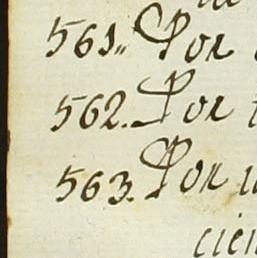 561. Por
562. Por
563. Por
cien